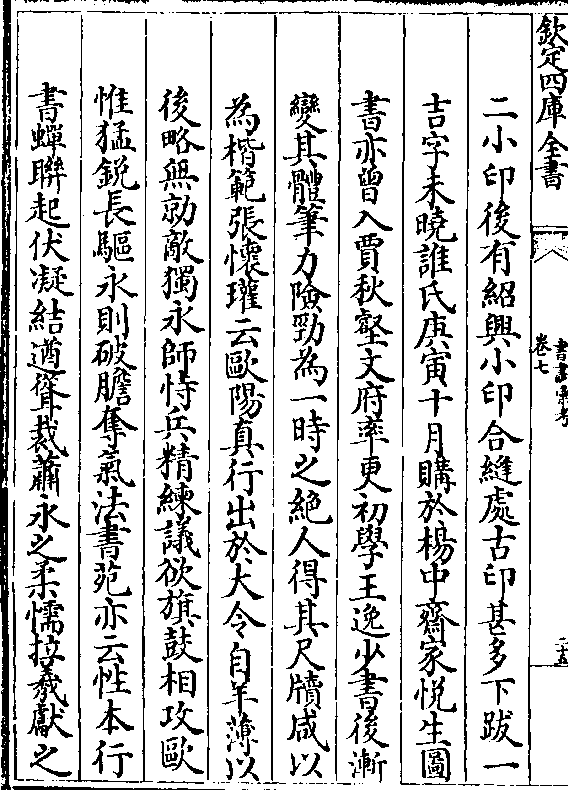 欽定四庫全書
書畫彙考
卷七
二小印後有紹興小印合縫處古印甚多下跋一
吉字未曉誰氏庚寅十月購於楊中齋家悅生圖
書亦曾入賈秋壑文府率更初學王逸少書後漸
變其體筆力險勁為一時之絕人得其尺牘咸以
為楷範張懷瓘云歐陽真行出於大令自羊薄以
後略無勍敵獨永師恃兵精練議欲旗鼓相攻歐
惟猛銳長驅永則破膽奪氣法書苑亦云性本行
書蟬聯起伏凝結遒聳裁蕭永之柔懦拉羲獻之